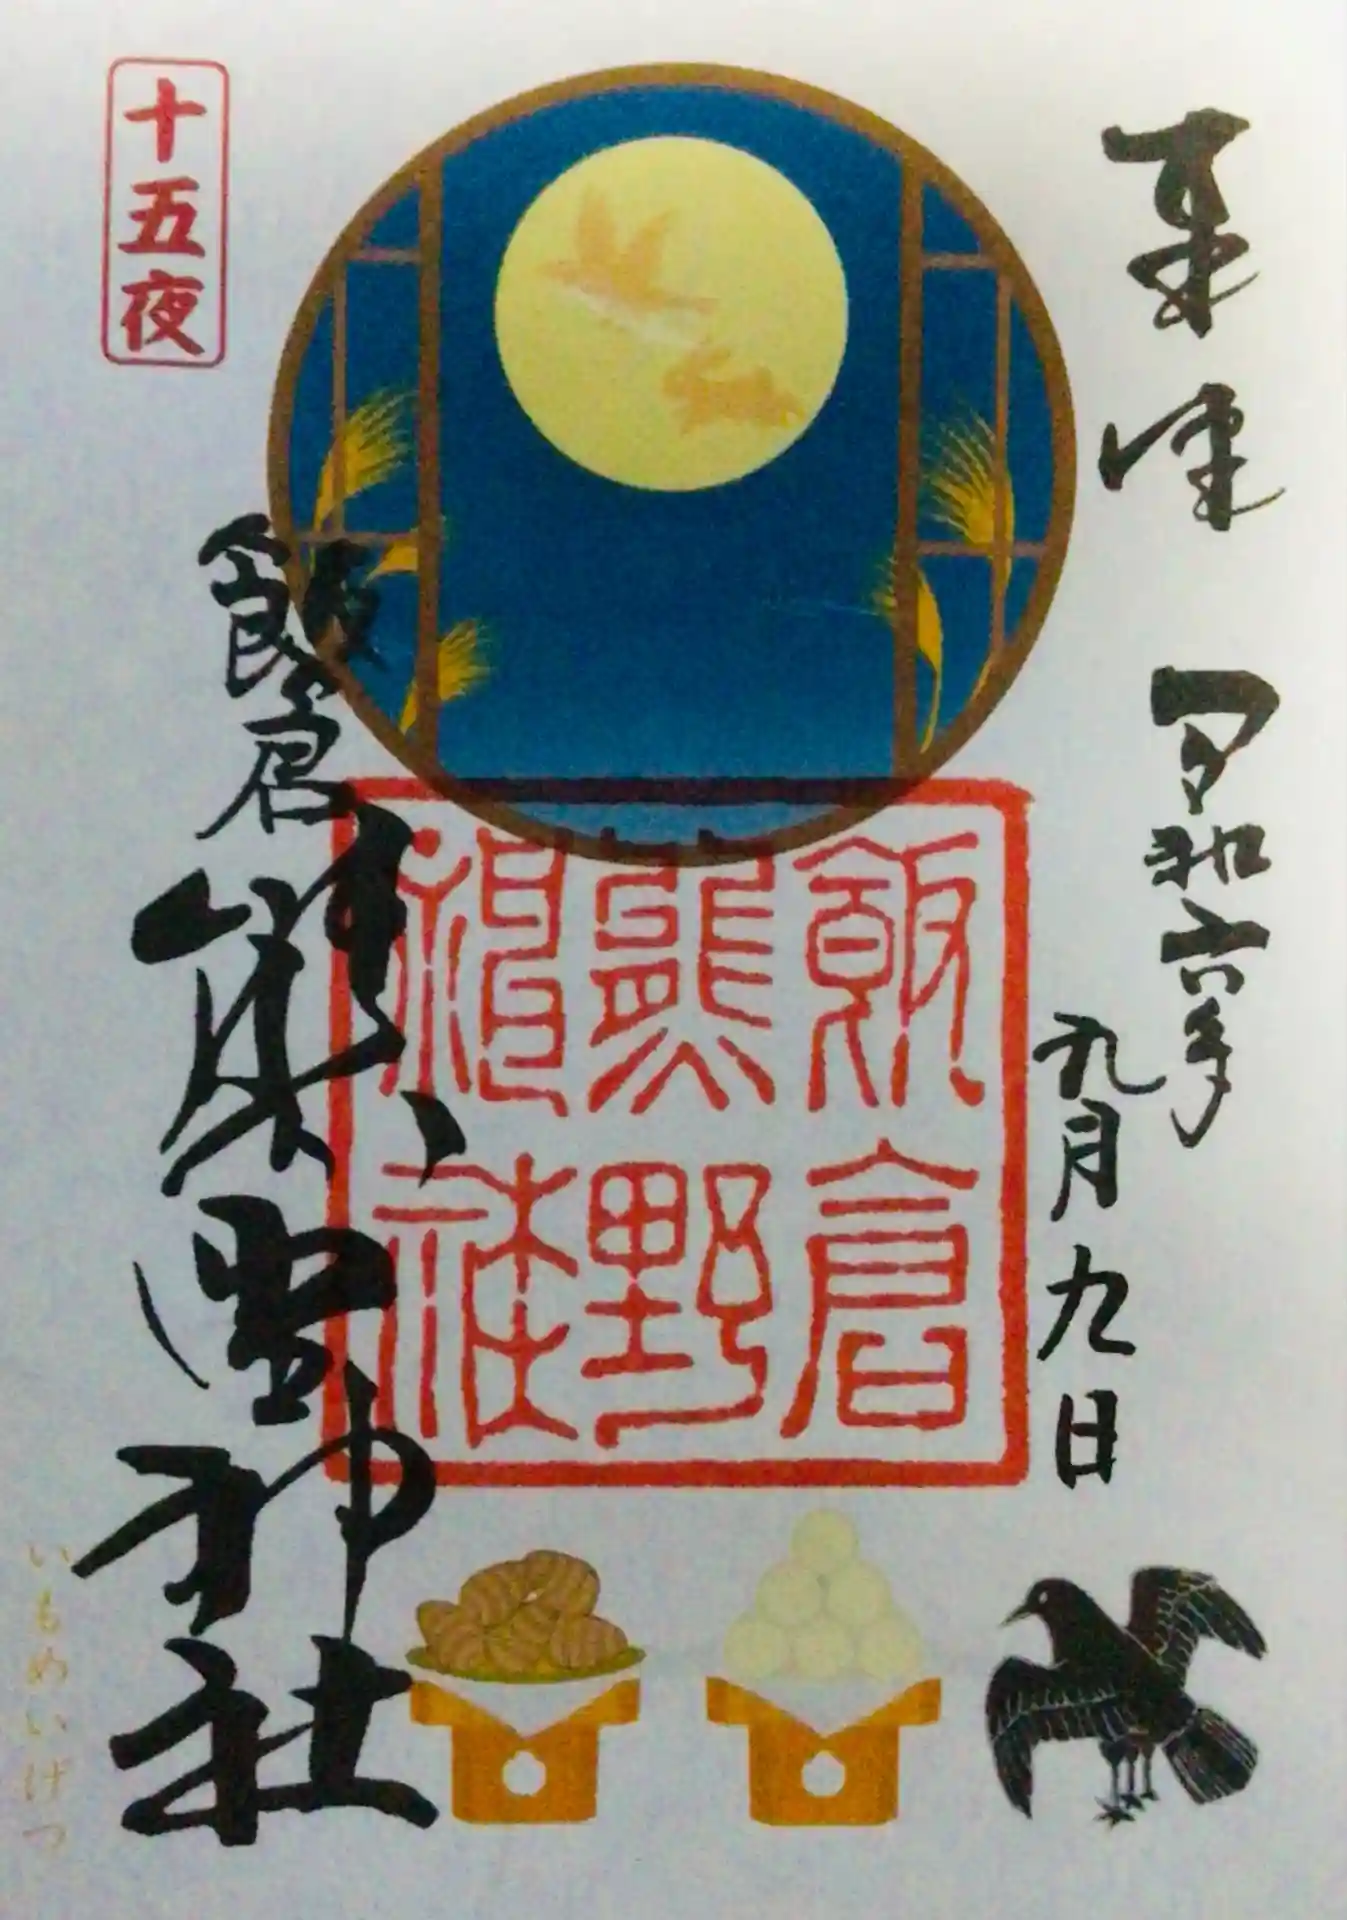 奉拝
令和六年
九月九日
飯倉
熊野
神社
飯倉
熊野
神社
十五夜
いもめいげつ